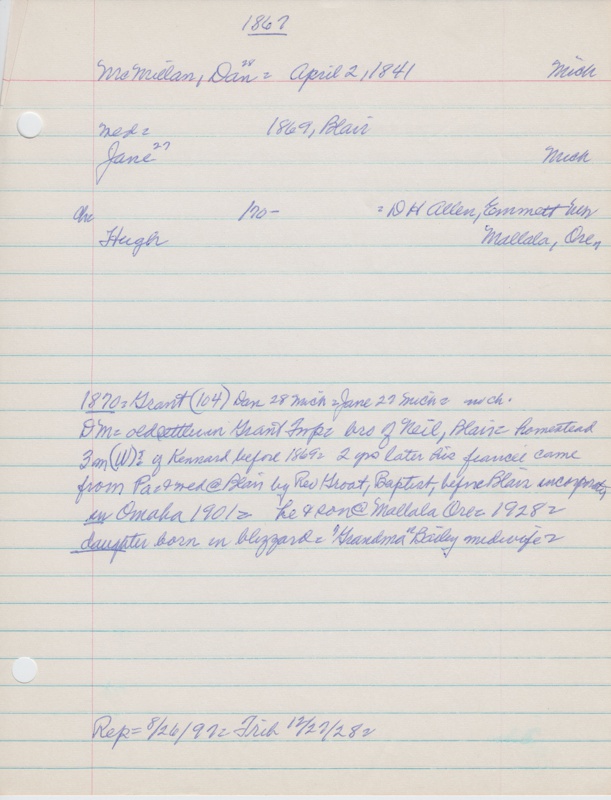 1867
McMillan, Dan²⁸ = April 2, 1841 Mich
med = 1869, Blair
Jane²⁷ Mich
Chr 170- = D H Allen, Emmett
Hugh Mallala, Ore,
1870 = Grant (104) Dan 28 Mich = Jane 27 Mich = nch.
DM = old settler in Grant Twp = bro of Neil, Blair = homestead
3 m (W) of Kennard before 1869 = 2 yrs later his fiancee came
from Pa & med @ Blair by Rev Groat, Baptist, before Blair incorporated
in Omaha 1901 = he & son @ Mallala Ore = 1928 =
daughter born in blizzard = "Grandma" Bailey midwife =
Rep = 8/26/97 = Trib 12/27/28 =